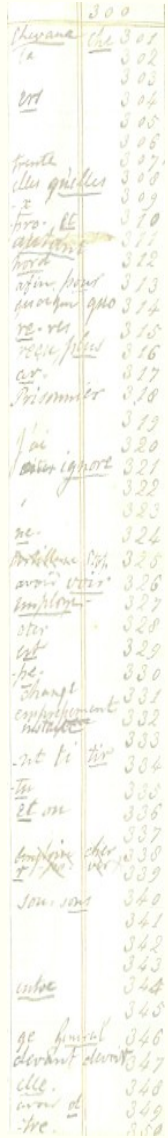 300
che 301
la 302
303
ers 304
305
306
trente 307
elles quelles 308
x 309
et 310
autant 311
nord 312
afin pour 313
quoique quo 314
re. res 315
reçu plus 316
ar. 317
Prisonnier 318
319
j'ai 320
ignore 321
322
323
ne. 324
325
avoir voir 326
employe- 327
oter 328
est 329
-pe. 330
change 331
332
333
-nt ti tir 334
-tu 335
et on 336
337
cher 338
339
son. sont 340
341
342
343
entre 344
345
ge general 346
devant devoit 347
elle. 348
avoir 349
-tre. 350